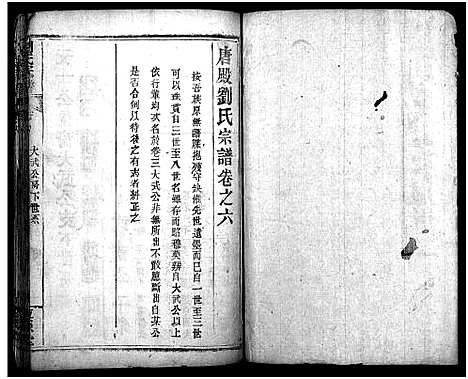 唐殿劉氏宗譜卷之六
按吾族原無譜牒抱殘守缺惟先世遺墨而已自一世至三世
可以珠貫自三世至八世名雖存而昭穆莫辨自大武公以上
依行輩均次名於卷三大武公非無所出不敢臆斷出自某公
是否合例以待後之有志者糾正之
大武公房下世系